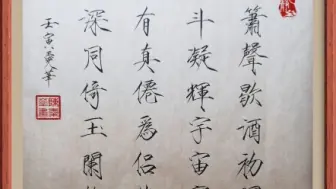 簫聲歇酒初
斗凝輝宇宙
有真僊為侶
深同倚玉闌
壬寅